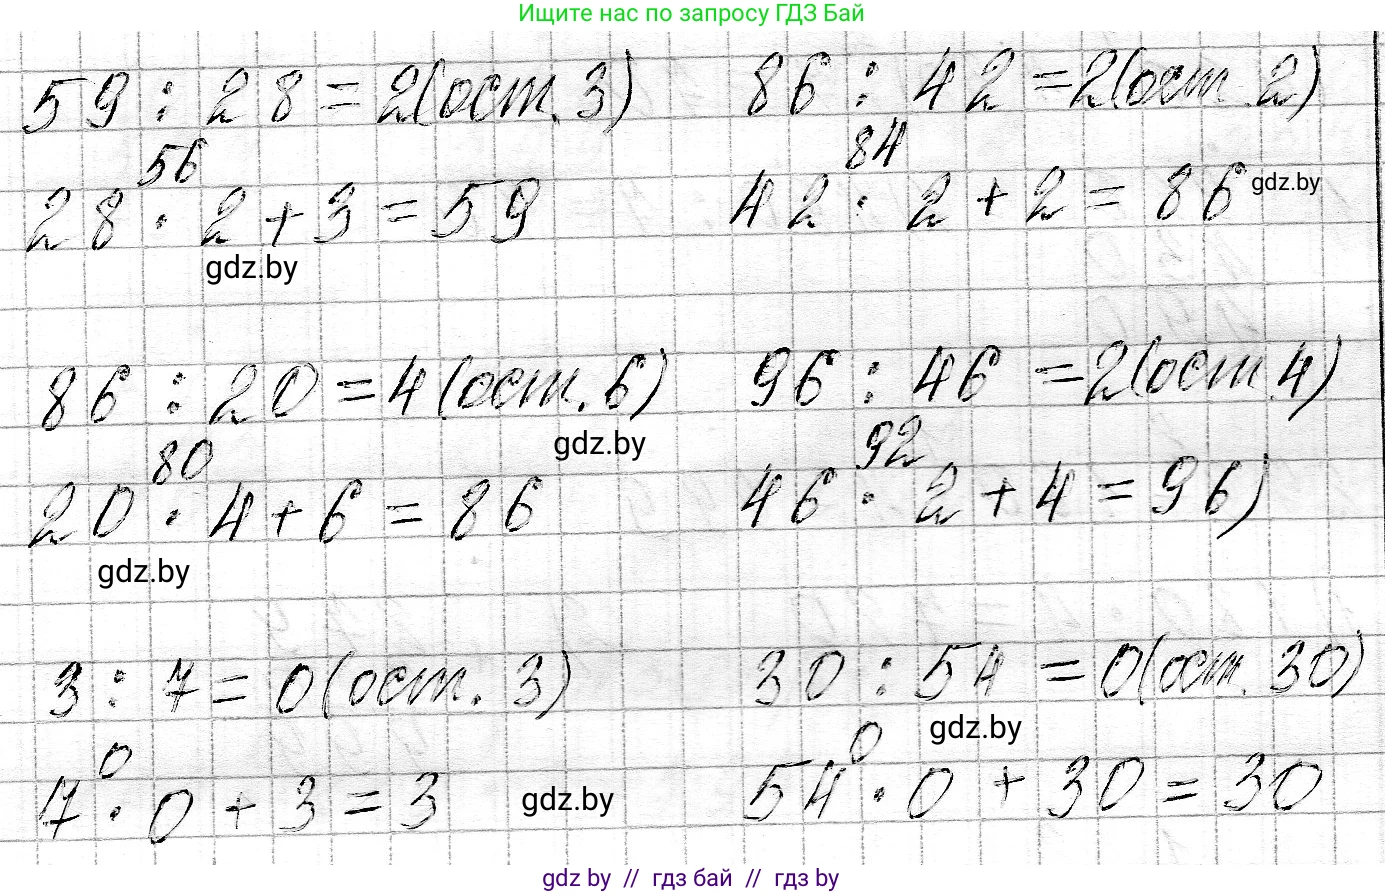 Ищите нас по запросу ГДЗ Бай
59 : 28 = 2 (ост. 3) 86 : 42 = 2 (ост. 2)
56 84
28 · 2 + 3 = 59 42 · 2 + 2 = 86 gdz.by
gdz.by
86 : 20 = 4 (ост. 6) 96 : 46 = 2 (ост 4)
gdz.by
80 92
20 · 4 + 6 = 86 46 · 2 + 4 = 96)
gdz.by
3 : 7 = 0 (ост. 3) 30 : 54 = 0 (ост. 30)
gdz.by
0 0
7 · 0 + 3 = 3 gdz.by 54 · 0 + 30 = 30
gdz.by // гдз бай // гдз by